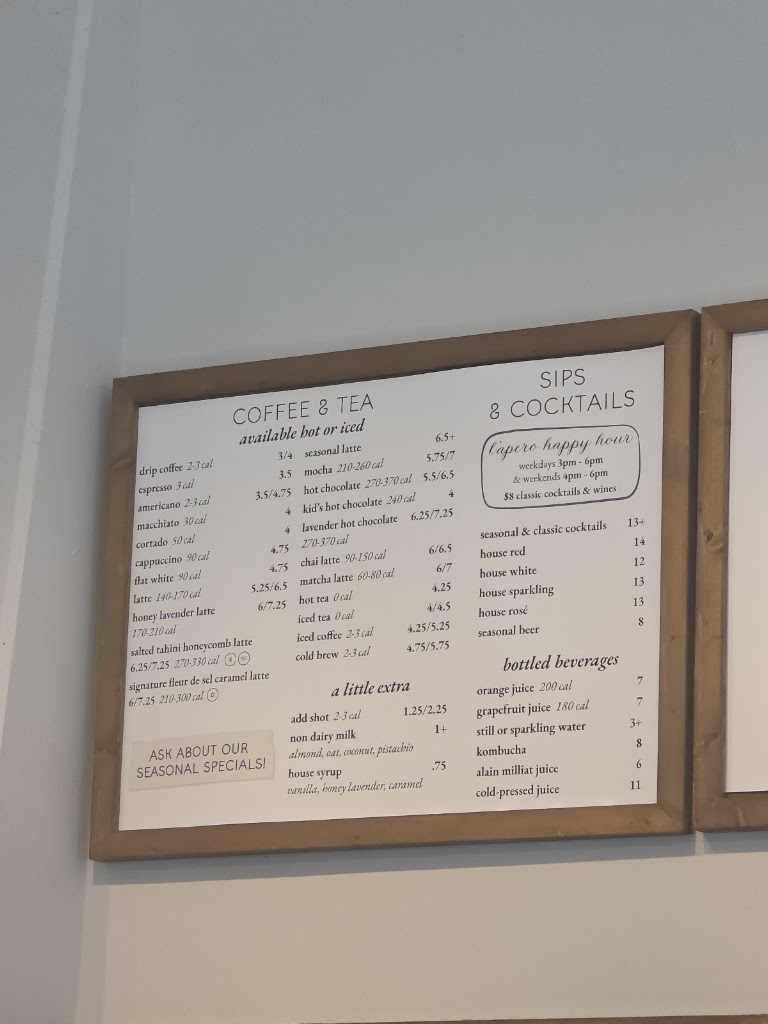 COFFEE & TEA
available hot or iced
drip coffee 2-3 cal 3/4
espresso 3 cal 3.5
americano 2-3 cal 3.5/4.75
macchiato 30 cal 4
cortado 50 cal 4
cappuccino 90 cal 4.75
flat white 90 cal 4.75
latte 140-170 cal 5.25/6.5
honey lavender latte 6/7.25
170-210 cal
salted tahini honeycomb latte
6.25/7.25 270-330 cal
signature fleur de sel caramel latte
6/7.25 210-300 cal
ASK ABOUT OUR
SEASONAL SPECIALS!
seasonal latte 6.5+
mocha 210-260 cal 5.75/7
hot chocolate 270-370 cal 5.5/6.5
kid's hot chocolate 240 cal 4
lavender hot chocolate 6.25/7.25
270-370 cal
chai latte 90-150 cal 6/6.5
matcha latte 60-80 cal 6/7
hot tea 0 cal 4.25
iced tea 0 cal 4/4.5
iced coffee 2-3 cal 4.25/5.25
cold brew 2-3 cal 4.75/5.75
a little extra
add shot 2-3 cal 1.25/2.25
non dairy milk 1+
almond, oat, coconut, pistachio
house syrup .75
vanilla, honey lavender, caramel
SIPS
& COCKTAILS
l'apero happy hour
weekdays 3pm - 6pm
& weekends 4pm - 6pm
$8 classic cocktails & wines
seasonal & classic cocktails 13+
house red 14
house white 12
house sparkling 13
house rosé 13
seasonal beer 8
bottled beverages
orange juice 200 cal 7
grapefruit juice 180 cal 7
still or sparkling water 3+
kombucha 8
alain milliat juice 6
cold-pressed juice 11